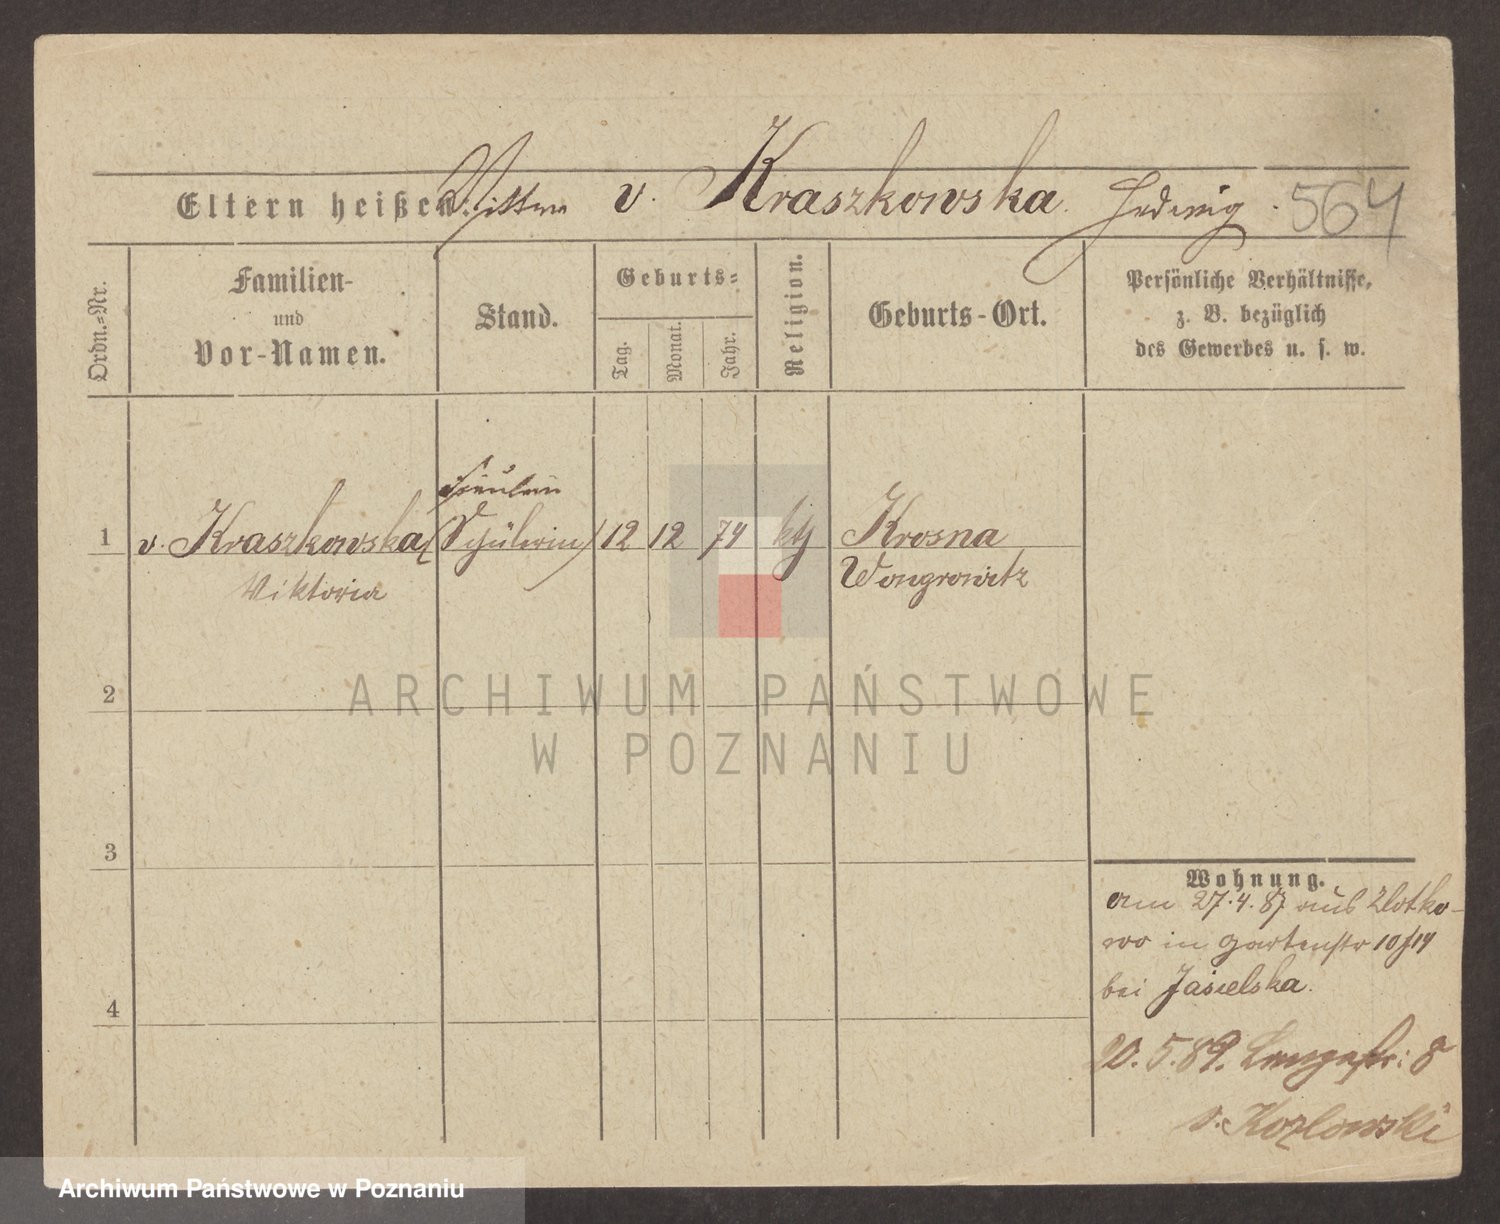 Eltern heißen: Wittwe v. Kraszkowska Hedwig. 564
Ordn.=Nr.
Familien-
und
Vor-Namen.
Stand.
Geburts=
Tag.
Monat.
Jahr.
Religion.
Geburts-Ort.
Persönliche Verhältnisse,
z. B. bezüglich
des Gewerbes u. s. w.
Fräulein
1 v. Kraszkowska (Schülerin) 12 12 74 kth Krosna
Viktoria Wongrowitz
2
3
4
Wohnung.
am 27.4.87 aus Zlotko-
wo in Gartenstr
bei Jasielska.
20.5.89. Langestr: 8
v. Kozlowski
ARCHIWUM PAŃSTWOWE
W POZNANIU
Archiwum Państwowe w Poznaniu